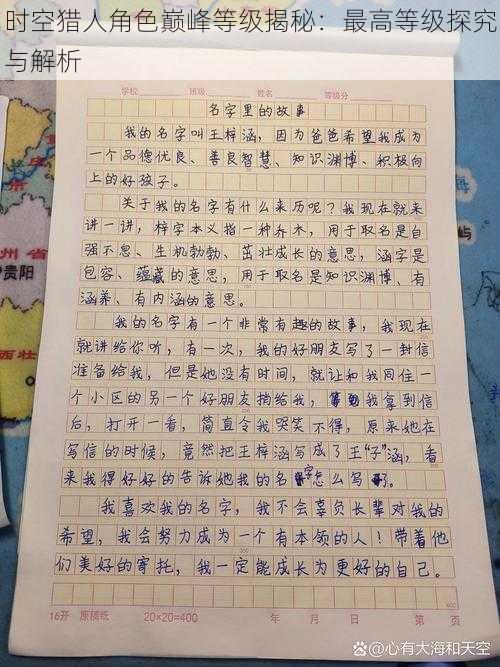 时空猎人角色巅峰等级揭秘：最高等级探究
与解析
学校 班级 姓名 等级分
名字里的故事
我的名字叫王梓涵，因为爸爸希望我成为
一个品德优良、善良智慧、知识渊博、积极向
上的好孩子。
关于我的名字有什么来历呢？我现在就来
讲一讲，梓字本义指一种乔木，用于取名是自
强不息、生机勃勃、茁壮成长的意思，涵字是
包容、蕴藏的意思，用于取名是知识渊博、有
涵养、有内涵的意思。
我的名字有一个非常有趣的故事，我现在
就讲给你听，有一次，我的好朋友写了一封信
准备给我，但是她没有时间，就让和我同住一
个小区的另一个好朋友捎给我，我拿到信
后，打开一看，简直令我哭笑不得，原来她在
写信的时候，竟然把王梓涵写成了王“子”涵，看
来我得好好的告诉她我的名字怎么写。
我喜欢我的名字，我不会辜负长辈对我的
希望，我会努力成为一个有本领的人！带着他
们美好的寄托，我一定能成长为更好的自己。
16开 原稿纸 20×20=400 年 月 日 第 页
州省
贵阳
西壮
屿
@心有大海和天空